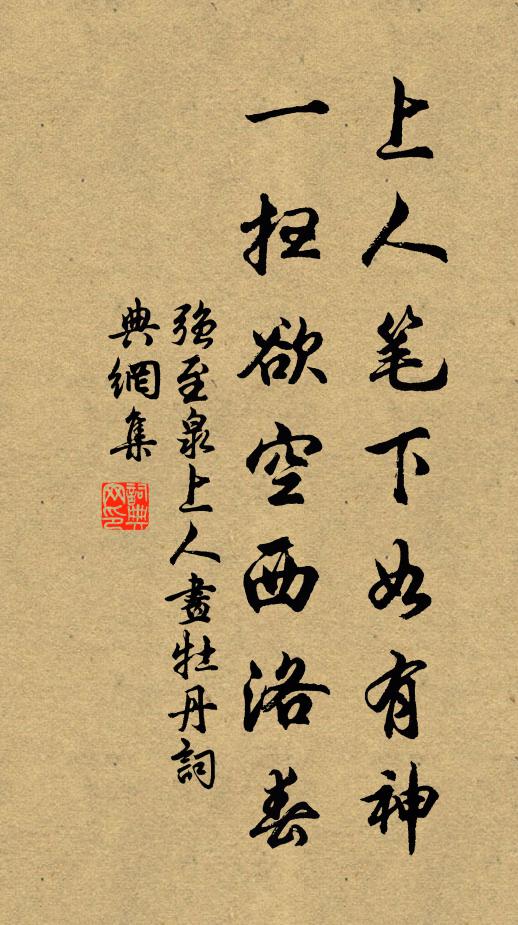 上人笔下如有神
一扫欲空西洛春
强至泉上人畫牡丹詞
典網集
詞典网印